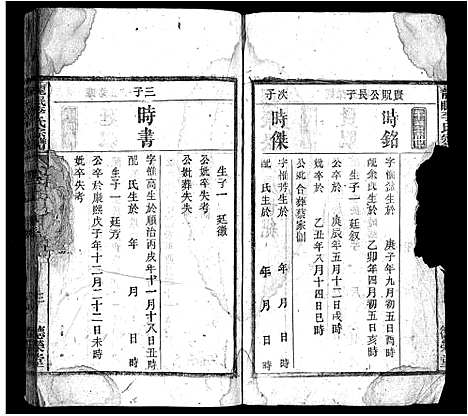 賢公長子
時銘
字惟益生於 庚子年九月初五日時
配余氏生於 乙卯年四月初五日時
生子一 廷叙
公卒於 庚辰年五月十二日戌時
妣卒於 乙丑年八月十四日巳時
公妣合葬蔡家
次子
時傑
字惟芳生於 年 月 日 時
配 氏生於 年 月 日 時
生子一 廷徽
公妣卒失考
公妣葬失失
三子
時書
字惟高生於順治丙戌年十一月十八日丑時
配 氏生於 年 月 日 時
生子一 廷芳
公卒於康熙戊子年十二月二十二日未時
妣卒失考
德英堂